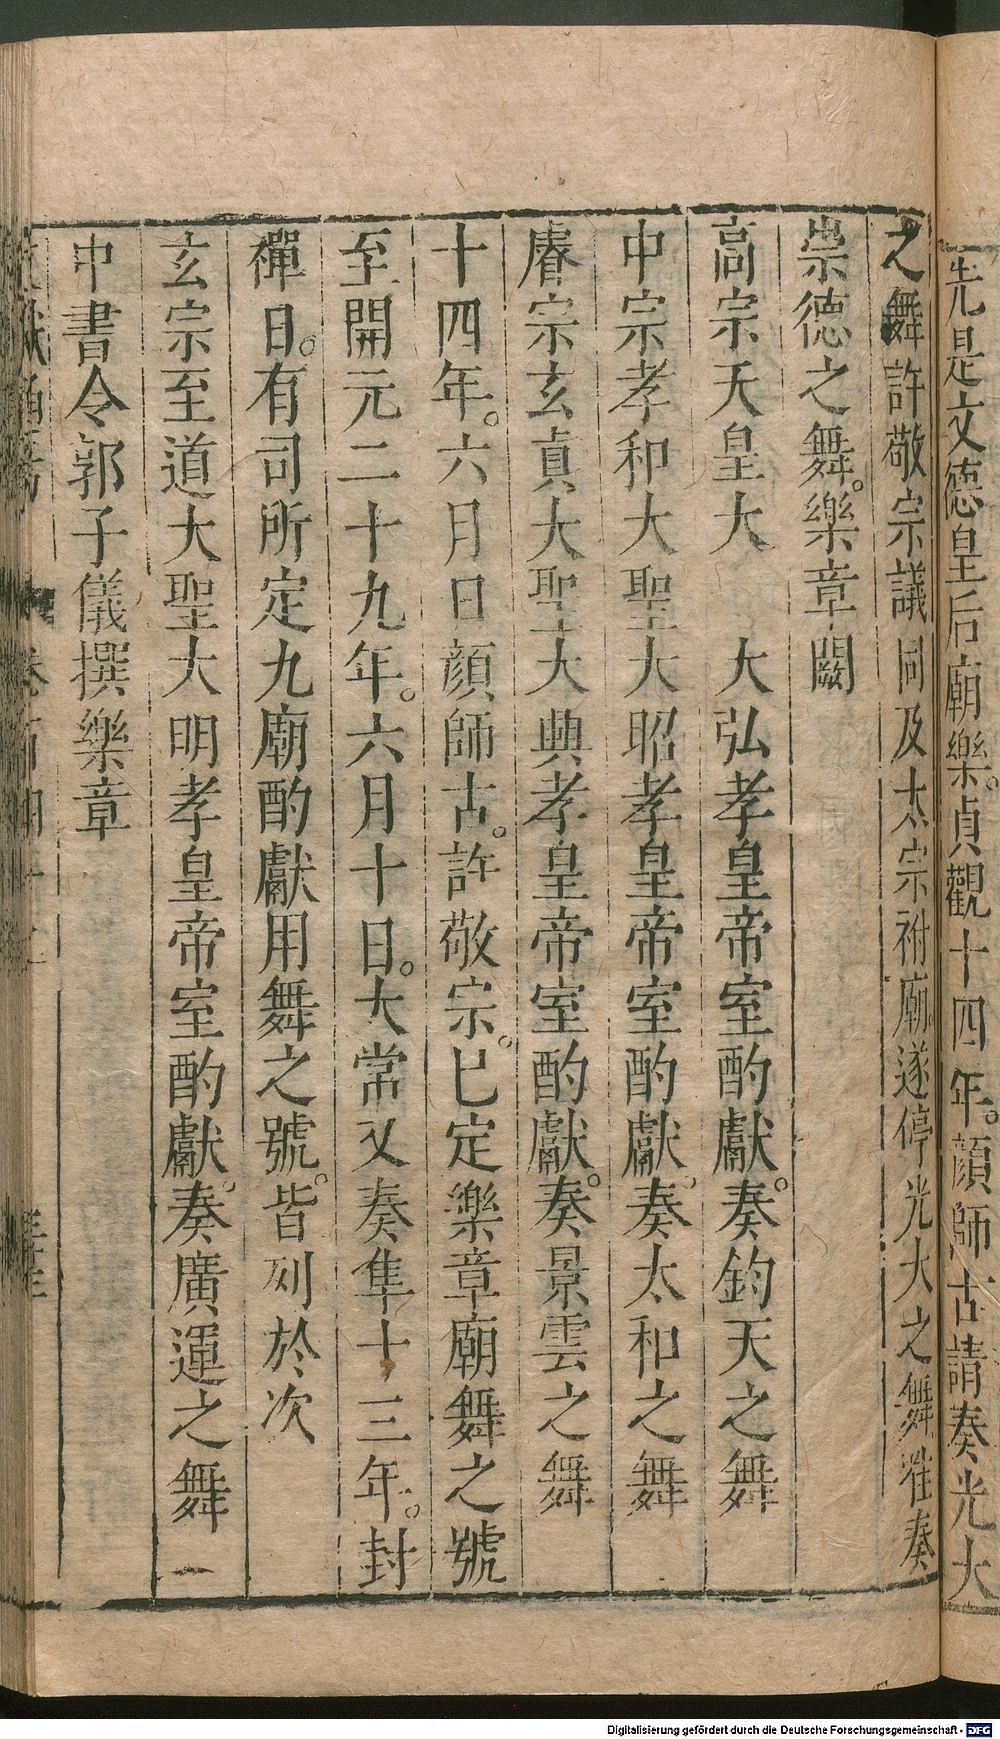 先是文德皇后廟樂。貞觀十四年。顔師古請奏光大
之舞許敬宗議同及太宗祔廟遂停光大之舞惟奏
崇德之舞。樂章闕
高宗天皇大 大弘孝皇帝室酌獻。奏鈞天之舞
中宗孝和大聖大昭孝皇帝室酌獻。奏太和之舞
睿宗玄真大聖大興孝皇帝室酌獻。奏景雲之舞
十四年。六月日顔師古。許敬宗。已定樂章廟舞之號
至開元二十九年。六月十日。大常又奏隼十三年。封
禪日。有司所定九廟酌獻用舞之號。皆列於次
玄宗至道大聖大明孝皇帝室酌獻。奏廣運之舞 一
中書令郭子儀撰樂章
Digitalisierung gefördert durch die Deutsche Forschungsgemeinschaft - DFG